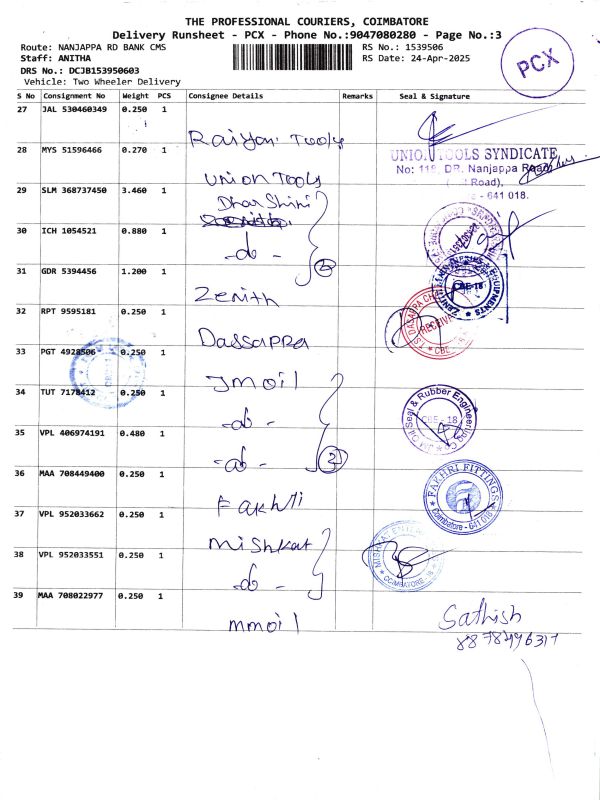 THE PROFESSIONAL COURIERS, COIMBATORE
Delivery Runsheet - PCX - Phone No.:9047080280 - Page No.:3
Route: NANJAPPA RD BANK CMS
RS No.: 1539506
Staff: ANITHA
RS Date: 24-Apr-2025
DRS No.: DCJB153950603
Vehicle: Two Wheeler Delivery
PCX
S No Consignment No Weight PCS Consignee Details Remarks Seal & Signature
27 JAL 530460349 0.250 1 Raiyan Tools
28 MYS 51596466 0.270 1 Union Tools
UNION TOOLS SYNDICATE
No: 118, DR. Nanjappa Road
Road),
- 641 018.
29 SLM 368737450 3.460 1 Dharshini
30 ICH 1054521 0.880 1 -do-
2
31 GDR 5394456 1.200 1 Zenith
CBE-18
32 RPT 9595181 0.250 1 Dassappa
33 PGT 4928506 0.250 1 Jmoil
34 TUT 7178412 0.250 1 -do-
Seal & Rubber Engineering
CBE - 18
35 VPL 406974191 0.480 1 -do-
3
36 MAA 708449400 0.250 1 Fakhri
FAKHRI FITTINGS
Coimbatore - 641 018
37 VPL 952033662 0.250 1 Mishkat
38 VPL 952033551 0.250 1 -do-
COIMBATORE - 18
39 MAA 708022977 0.250 1 mmoil
Sathish
8878496317